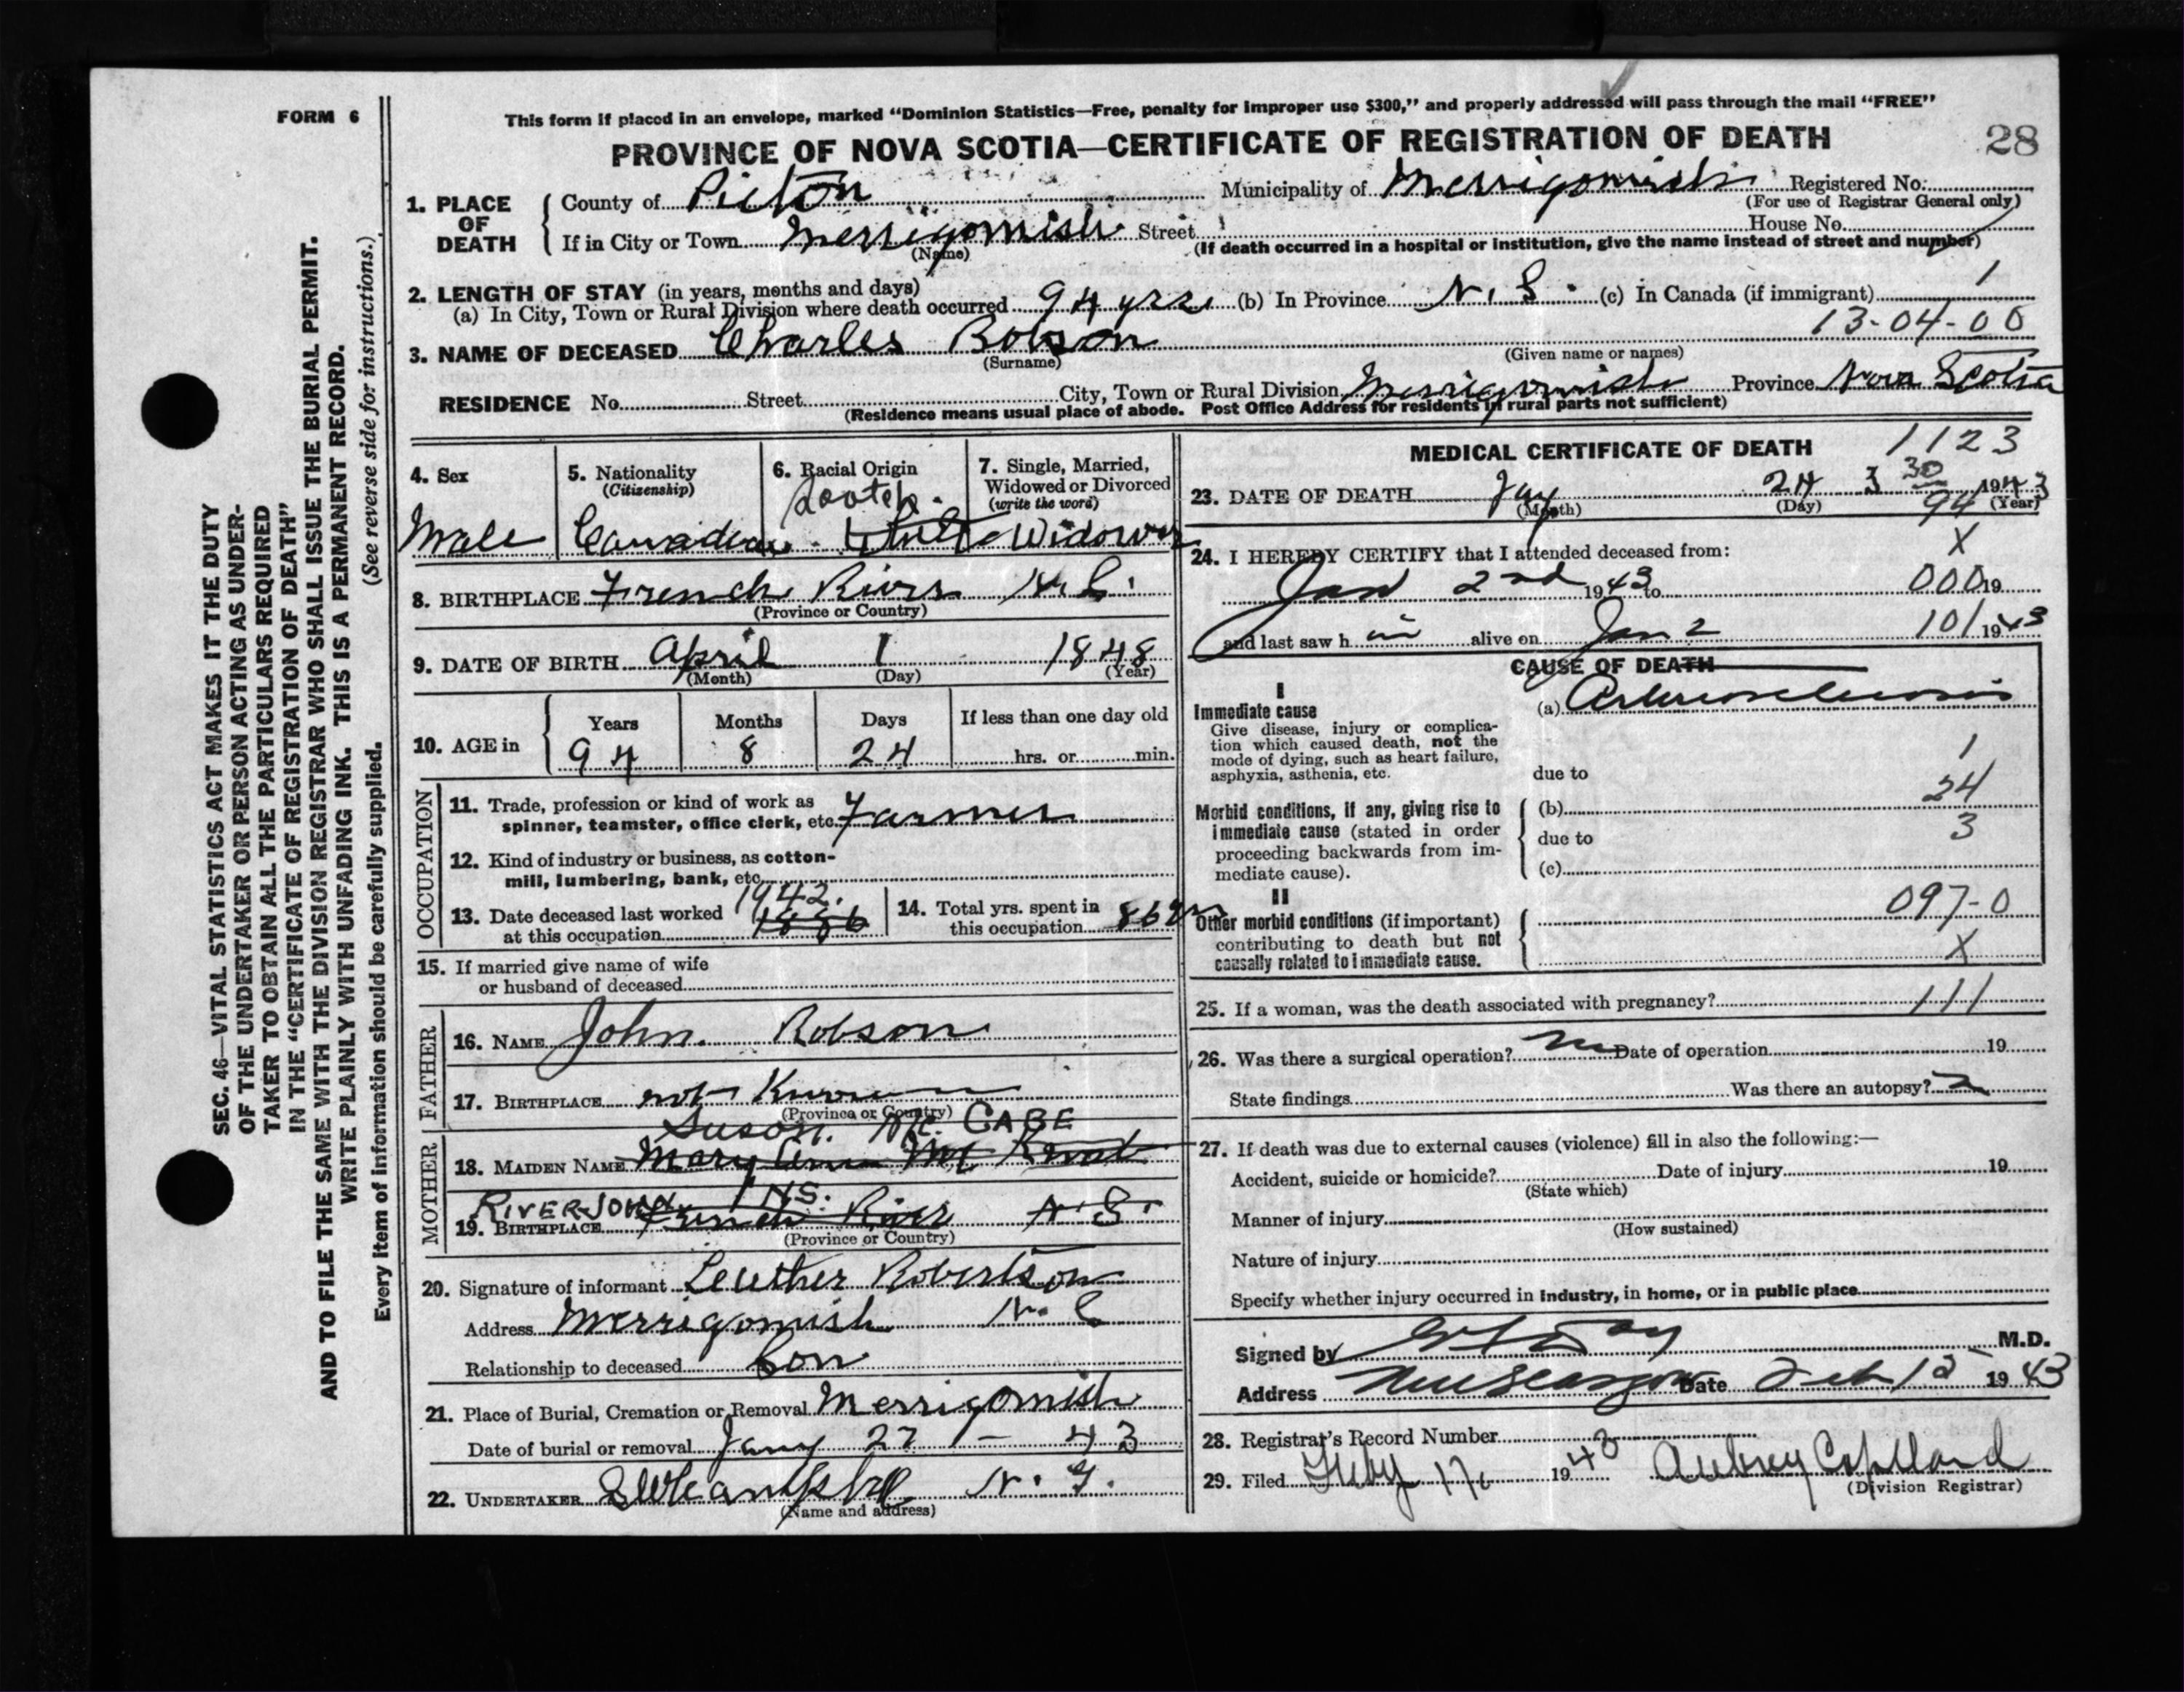 FORM 6
This form if placed in an envelope, marked "Dominion Statistics—Free, penalty for improper use $300," and properly addressed will pass through the mail "FREE"
PROVINCE OF NOVA SCOTIA—CERTIFICATE OF REGISTRATION OF DEATH
28
SEC. 46—VITAL STATISTICS ACT MAKES IT THE DUTY
OF THE UNDERTAKER OR PERSON ACTING AS UNDER-
TAKER TO OBTAIN ALL THE PARTICULARS REQUIRED
IN THE "CERTIFICATE OF REGISTRATION OF DEATH"
AND TO FILE THE SAME WITH THE DIVISION REGISTRAR WHO SHALL ISSUE THE BURIAL PERMIT.
WRITE PLAINLY WITH UNFADING INK. THIS IS A PERMANENT RECORD.
(See reverse side for instructions.)
Every item of information should be carefully supplied.
1. PLACE OF DEATH
County of Pictou Municipality of Merrigomish Registered No.
(For use of Registrar General only)
If in City or Town Merrigomish Street House No.
(Name) (If death occurred in a hospital or institution, give the name instead of street and number)
2. LENGTH OF STAY (in years, months and days)
(a) In City, Town or Rural Division where death occurred 94 yrs. (b) In Province N. S. (c) In Canada (if immigrant) 1
13-04-00
3. NAME OF DECEASED Charles Robson
(Surname) (Given name or names)
RESIDENCE No. Street City, Town or Rural Division Merrigomish Province Nova Scotia
(Residence means usual place of abode. Post Office Address for residents in rural parts not sufficient)
4. Sex
Male
5. Nationality
(Citizenship)
Canadian
6. Racial Origin
Scotch.
White
7. Single, Married,
Widowed or Divorced
(write the word)
Widower
8. BIRTHPLACE French River N.S.
(Province or Country)
9. DATE OF BIRTH April 1 1848
(Month) (Day) (Year)
10. AGE in
Years Months Days If less than one day old
94 8 24 hrs. or min.
OCCUPATION
11. Trade, profession or kind of work as
spinner, teamster, office clerk, etc. Farmer
12. Kind of industry or business, as cotton-
mill, lumbering, bank, etc.
1942.
13. Date deceased last worked
at this occupation 1886
14. Total yrs. spent in
this occupation
15. If married give name of wife
or husband of deceased
FATHER
16. NAME John Robson
17. BIRTHPLACE not Known
(Province or Country)
MOTHER
Susan. Mc. CABE
18. MAIDEN NAME Mary
RIVER JOHN NS.
19. BIRTHPLACE French River N.S.
(Province or Country)
20. Signature of informant Leuther Robertson
Address Merrigomish N. S
Relationship to deceased Son
21. Place of Burial, Cremation or Removal Merrigomish
Date of burial or removal Jany 27 - 43
22. UNDERTAKER N. G.
(Name and address)
MEDICAL CERTIFICATE OF DEATH
1123
23. DATE OF DEATH Jany 24 3 30 1943
(Month) (Day) (Year)
94
24. I HEREBY CERTIFY that I attended deceased from:
X
Jan 2nd 1943 to 000 19
and last saw h im alive on Jan 2 101 1943
CAUSE OF DEATH
I
Immediate cause
Give disease, injury or complica-
tion which caused death, not the
mode of dying, such as heart failure,
asphyxia, asthenia, etc.
(a) Arteriosclerosis
1
due to
24
Morbid conditions, if any, giving rise to
immediate cause (stated in order
proceeding backwards from im-
mediate cause).
(b)
due to 3
(c)
II
Other morbid conditions (if important)
contributing to death but not
causally related to immediate cause.
097-0
X
25. If a woman, was the death associated with pregnancy? 111
26. Was there a surgical operation? no Date of operation 19
State findings Was there an autopsy?
27. If death was due to external causes (violence) fill in also the following:—
Accident, suicide or homicide? Date of injury 19
(State which)
Manner of injury
(How sustained)
Nature of injury
Specify whether injury occurred in industry, in home, or in public place
Signed by M.D.
Address New Glasgow Date Feb 15 1943
28. Registrar's Record Number
29. Filed 1943 Aubrey Copeland
(Division Registrar)